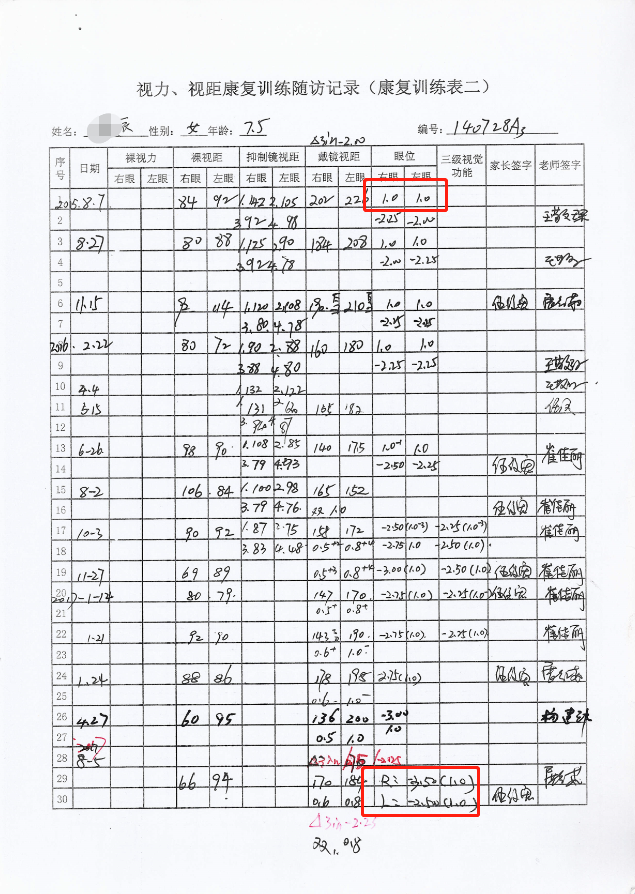 视力、视距康复训练随访记录（康复训练表二）
姓名： 辰 性别： 女 年龄： 7.5 编号：140728A3
△3in-2.00
序号 日期 裸视力 裸视距 抑制镜视距 戴镜视距 眼位 三级视觉功能 家长签字 老师签字
右眼 左眼 右眼 左眼 右眼 左眼 右眼 左眼 右眼 左眼
1 2015.8.7 84 92 1.42 2.105 202 226 1.0 1.0
2 3.92 4.98 -2.25 -2.00
3 8.27 80 88 1.125 2.90 184 208 1.0 1.0
4 3.92 4.78 -2.00 -2.25
5
6 11.15 1.120 2.108 190 210 1.0 1.0
7 3.80 4.78 -2.25 -2.25
8 2016.2.22 80 72 1.90 2.88 160 180 1.0 1.0
9 3.88 4.80 -2.25 -2.25
10 4.4 1.132 2.122
11 5.15 1.131 165 182
12
13 6-26 98 90 1.108 2.85 140 175 1.0⁻¹ 1.0
14 3.79 4.93 -2.50 -2.25
15 8-2 106 84 1.100 2.98 165 152
16 3.79 4.76 双 1.0
17 10-3 90 92 1.87 2.75 158 172 -2.50(1.0⁻³) -2.25(1.0⁻³) 崔佳丽
18 3.83 4.48 0.5⁺² 0.8⁺⁴ -2.75 1.0 -2.50(1.0)
19 11-27 69 89 0.5⁺³ 0.8⁺⁴ -3.00(1.0) -2.50(1.0) 崔佳丽
20 2017-1-14 80 79 147 170 -2.75(1.0) -2.25(1.0) 崔佳丽
21 0.5⁺ 0.8⁺
22 1.21 92 90 143 190 -2.75(1.0) -2.25(1.0) 崔佳丽
23 0.6⁺ 1.0⁻
24 1.24 88 86 178 198 2.75(1.0)
25 0.6⁻ 1.0⁻
26 4.27 60 95 136 200 -3.00
27 0.5 1.0 1.0
2017
28 8-5 △3in
29 66 94 170 184 R: -3.50(1.0)
30 0.6 0.8 L: -2.50(1.0)
△3in-2.25
双 0.8